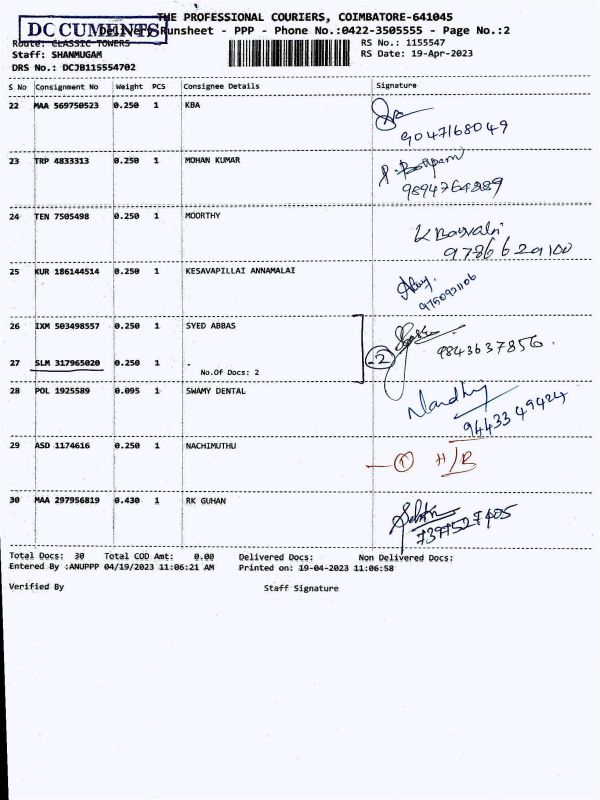 THE PROFESSIONAL COURIERS, COIMBATORE-641045
DC CUMENTS Runsheet - PPP - Phone No.:0422-3505555 - Page No.:2
Route: CLASSIC TOWERS RS No.: 1155547
Staff: SHANMUGAM RS Date: 19-Apr-2023
DRS No.: DCJB115554702
S No Consignment No Weight PCS Consignee Details Signature
22 MAA 569750523 0.250 1 KBA
9047168049
23 TRP 4833313 0.250 1 MOHAN KUMAR
9894764889
24 TEN 7505498 0.250 1 MOORTHY
9786629100
25 KUR 186144514 0.250 1 KESAVAPILLAI ANNAMALAI
9750921106
26 IXM 503498557 0.250 1 SYED ABBAS
2 9843637856
27 SLM 317965020 0.250 1 .
No.Of Docs: 2
28 POL 1925589 0.095 1 SWAMY DENTAL
Nandhy
9443349424
29 ASD 1174616 0.250 1 NACHIMUTHU
1 H/B
30 MAA 297956819 0.430 1 RK GUHAN
7397527405
Total Docs: 30 Total COD Amt: 0.00 Delivered Docs: Non Delivered Docs:
Entered By :ANUPPP 04/19/2023 11:06:21 AM Printed on: 19-04-2023 11:06:58
Verified By Staff Signature